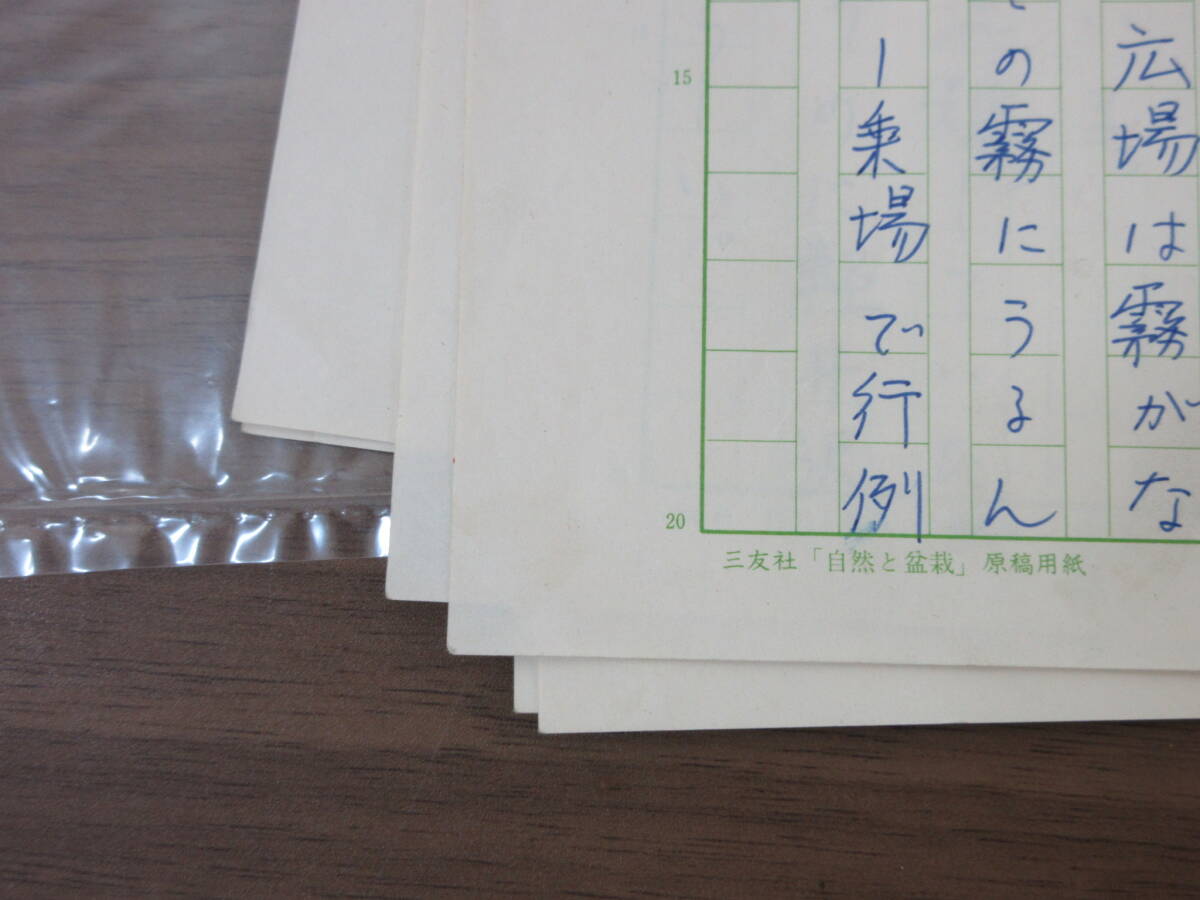 広場は霧がな
の霧にうるん
ー乗場で行例
15
20
三友社「自然と盆栽」原稿用紙